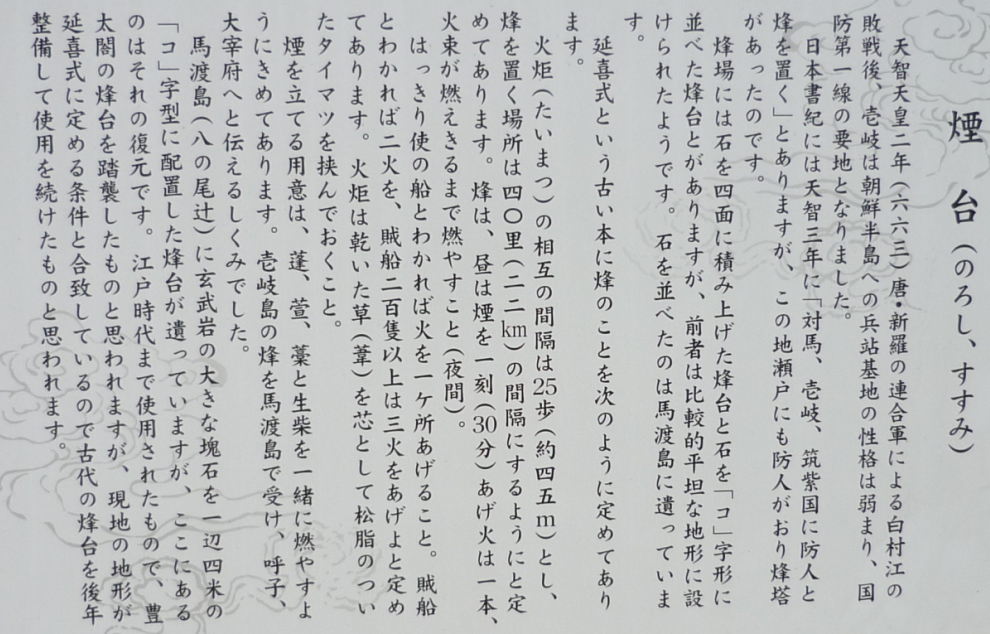 煙台(のろし、すすみ)
天智天皇二年(六六三)唐・新羅の連合軍による白村江の
敗戦後、壱岐は朝鮮半島への兵站基地の性格は弱まり、国
防第一線の要地となりました。
日本書紀には天智三年に「対馬、壱岐、筑紫国に防人と
烽を置く」とありますが、この地瀬戸にも防人がおり烽塔
があったのです。
烽場には石を四面に積み上げた烽台と石を「コ」字形に
並べた烽台とがありますが、前者は比較的平坦な地形に設
けられたようです。石を並べたのは馬渡島に遺っていま
す。
延喜式という古い本に烽のことを次のように定めてあり
ます。
火炬(たいまつ)の相互の間隔は25歩(約四五m)とし、
烽を置く場所は四〇里(二二km)の間隔にするようにと定
めてあります。烽は、昼は煙を一刻(30分)あげ火は一本、
火束が燃えきるまで燃やすこと(夜間)。
はっきり使の船とわかれば火を一ヶ所あげること。賊船
とわかれば二火を、賊船二百隻以上は三火をあげよと定め
てあります。火炬は乾いた草(葦)を芯として松脂のつい
たタイマツを挟んでおくこと。
煙を立てる用意は、蓬、萱、藁と生柴を一緒に燃やすよ
うにきめてあります。壱岐島の烽を馬渡島で受け、呼子、
大宰府へと伝えるしくみでした。
馬渡島(八の尾辻)に玄武岩の大きな塊石を一辺四米の
「コ」字型に配置した烽台が遺っていますが、ここにある
のはそれの復元です。江戸時代まで使用されたもので、豊
太閤の烽台を踏襲したものと思われますが、現地の地形が
延喜式に定める条件と合致しているので古代の烽台を後年
整備して使用を続けたものと思われます。